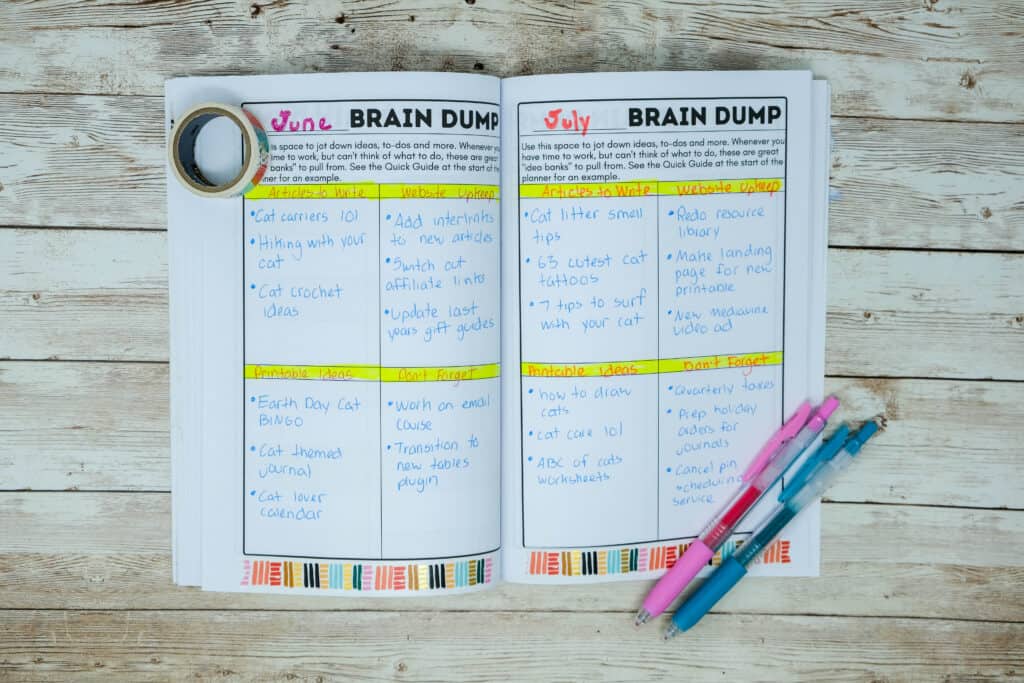 June BRAIN DUMP
is space to jot down ideas, to-dos and more. Whenever you
ime to work, but can't think of what to do, these are great
banks" to pull from. See the Quick Guide at the start of the
nner for an example.
Articles to Write
• Cat carriers 101
• Hiking with your
cat
• Cat crochet
ideas
Website Upkeep
• Add interlinks
to new articles
• Switch out
affiliate links
• Update last
years gift guides
Printable Ideas
• Earth Day Cat
BINGO
• Cat themed
journal
• Cat lover
calendar
Don't Forget
• Work on email
course
• Transition to
new tables
plugin
July BRAIN DUMP
Use this space to jot down ideas, to-dos and more. Whenever you
have time to work, but can't think of what to do, these are great
"idea banks" to pull from. See the Quick Guide at the start of the
planner for an example.
Articles to Write
• Cat litter smell
tips
• 63 cutest cat
tattoos
• 7 tips to surf
with your cat
Website Upkeep
• Redo resource
library
• Make landing
page for new
printable
• New mediavine
video ad
Printable Ideas
• how to draw
cats
• cat care 101
• ABC of cats
worksheets
Don't Forget
• Quarterly taxes
• Prep holiday
orders for
journals
• Cancel pin
scheduling
service